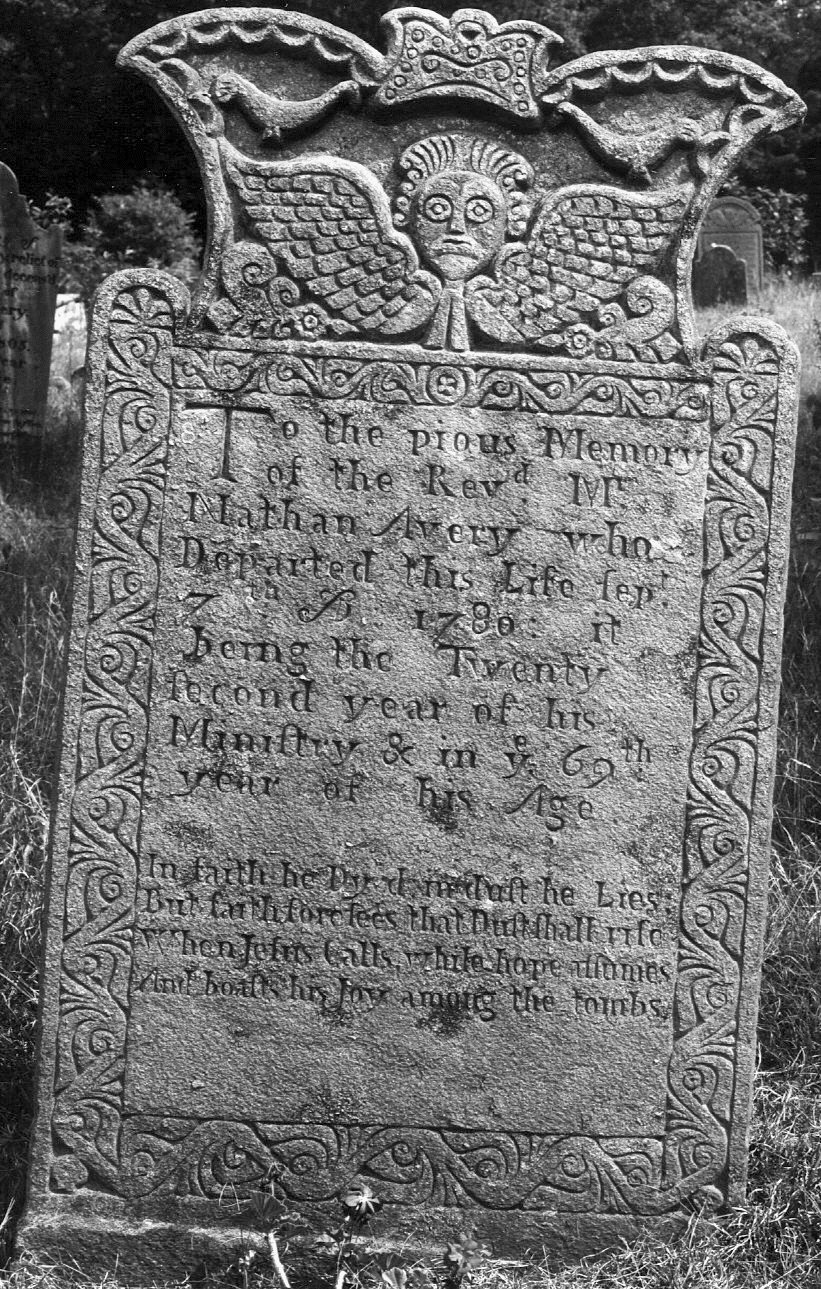 To the pious Memory
of the Revd. Mr.
Nathan Avery who
Departed this Life ſept.
7th AD. 1780: it
being the Twenty
ſecond year of his
Miniſtry & in ye. 69th
year of his Age
In faith he Dy,d, in duſt he Lies;
But faith foreſees that Duſt ſhall riſe
When Jeſus Calls, while hope aſſumes
And boaſts his Joy among the tombs.